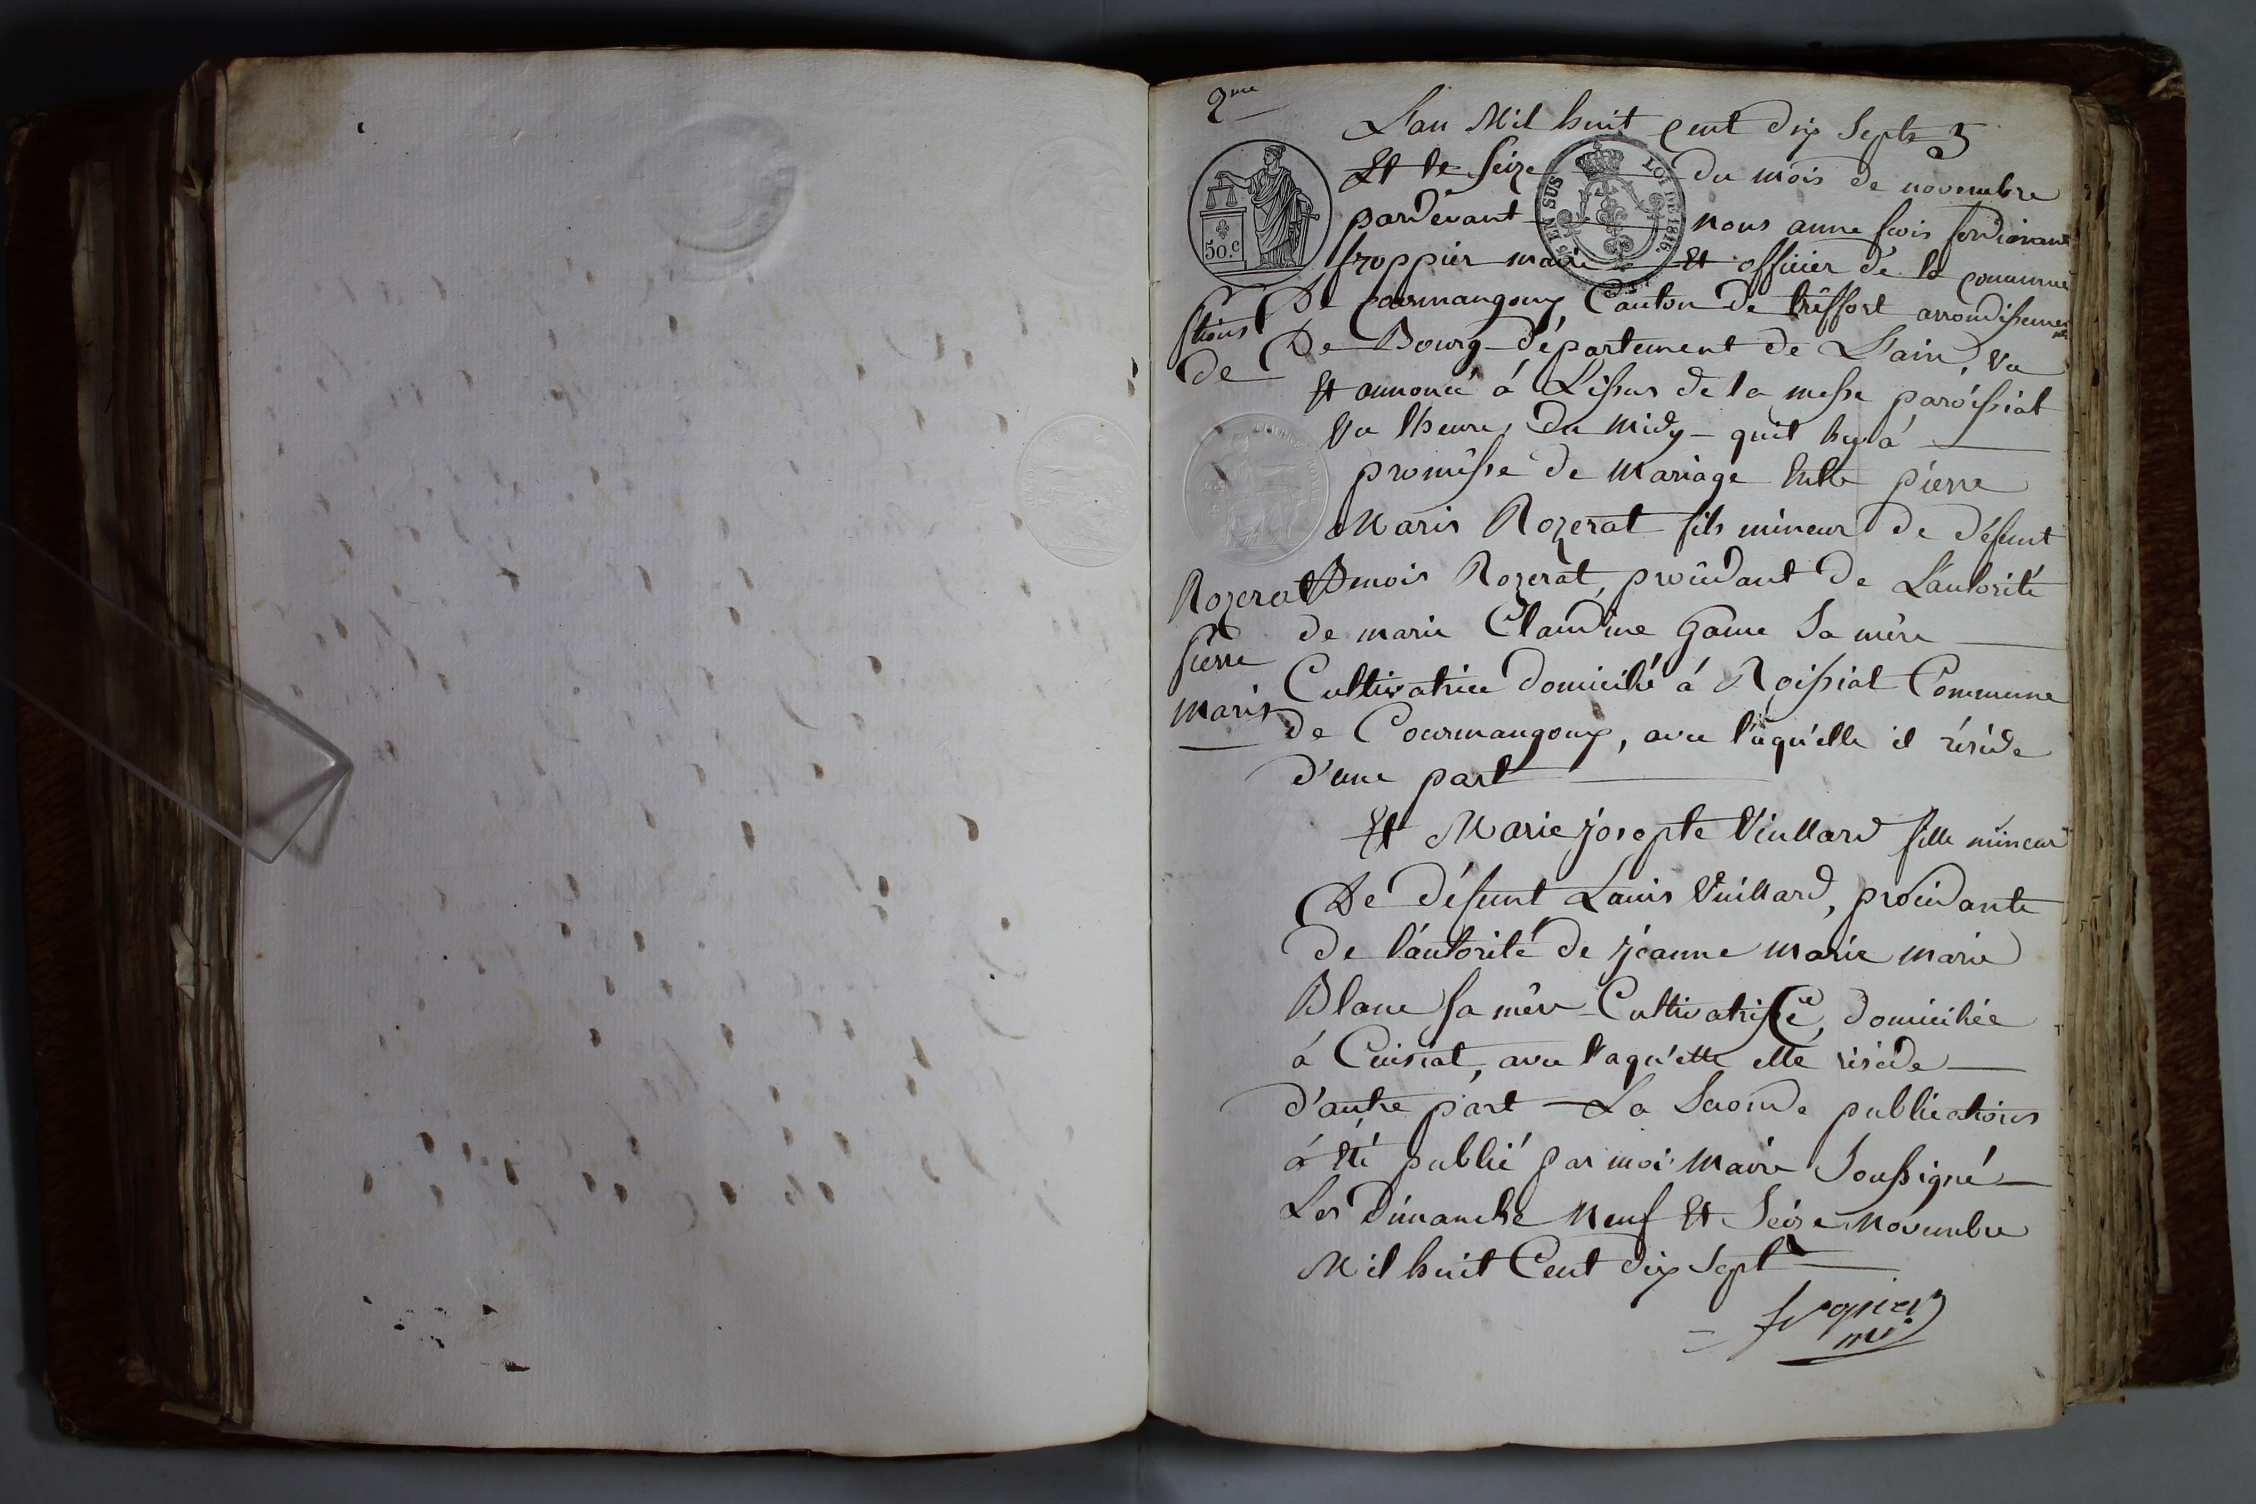 2me
L'an Mil huit cent dix Septs
Et le Seize du mois de novembre
pardevant nous anne
froppier maire Et officier de la commune
De Courmangoux, Canton de tréffort arrondissement
De Bourg département de L'ain, Va
Et annoncé á L'issus de la messe paroissial
Va l'heure, Du Midy - quil hy á
promésse de Mariage Entre pierre
Maris Rozerat fils mineur de défunt
Benois Rozerat, procédant de L'autorité
de marie Claudine Game Sa mére
Cultivatrice domicilié á Roissiat Commune
de Courmangoux, avec l'aqu'elle il réside
d'une part
Et Marie josepte Vuillard fille mineur
De défunt Louis Vuillard, procédante
de l'autorité de jeanne marie marie
Blanc sa mére Cultivatrice, domiciliée
á Cuisiat, avec l'aqu'elle elle réside
d'autre part - La Seconde publications
á été publié par moi Maire Soussigné
Les Dimanche Neuf Et Seize Novembre
Mil huit Cent dix Sept
fropier
me
stions
de
Rozerat
pierre
Maris
50.c
EN SUS
LOI DE 1816.